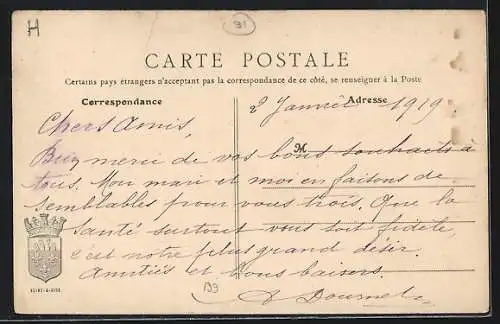 H
91
CARTE POSTALE
Certains pays étrangers n'acceptant pas la correspondance de ce côté, se renseigner à la Poste
Correspondance
Adresse
2 Janvier 1919.
Chers Amis,
M
Bien merci de vos bons souhaits à
tous. Mon mari et moi en faisons de
semblables pour vous trois. Que la
santé surtout vous soit fidèle,
c'est notre plus grand désir.
Amitiés et bons baisers.
Dournel